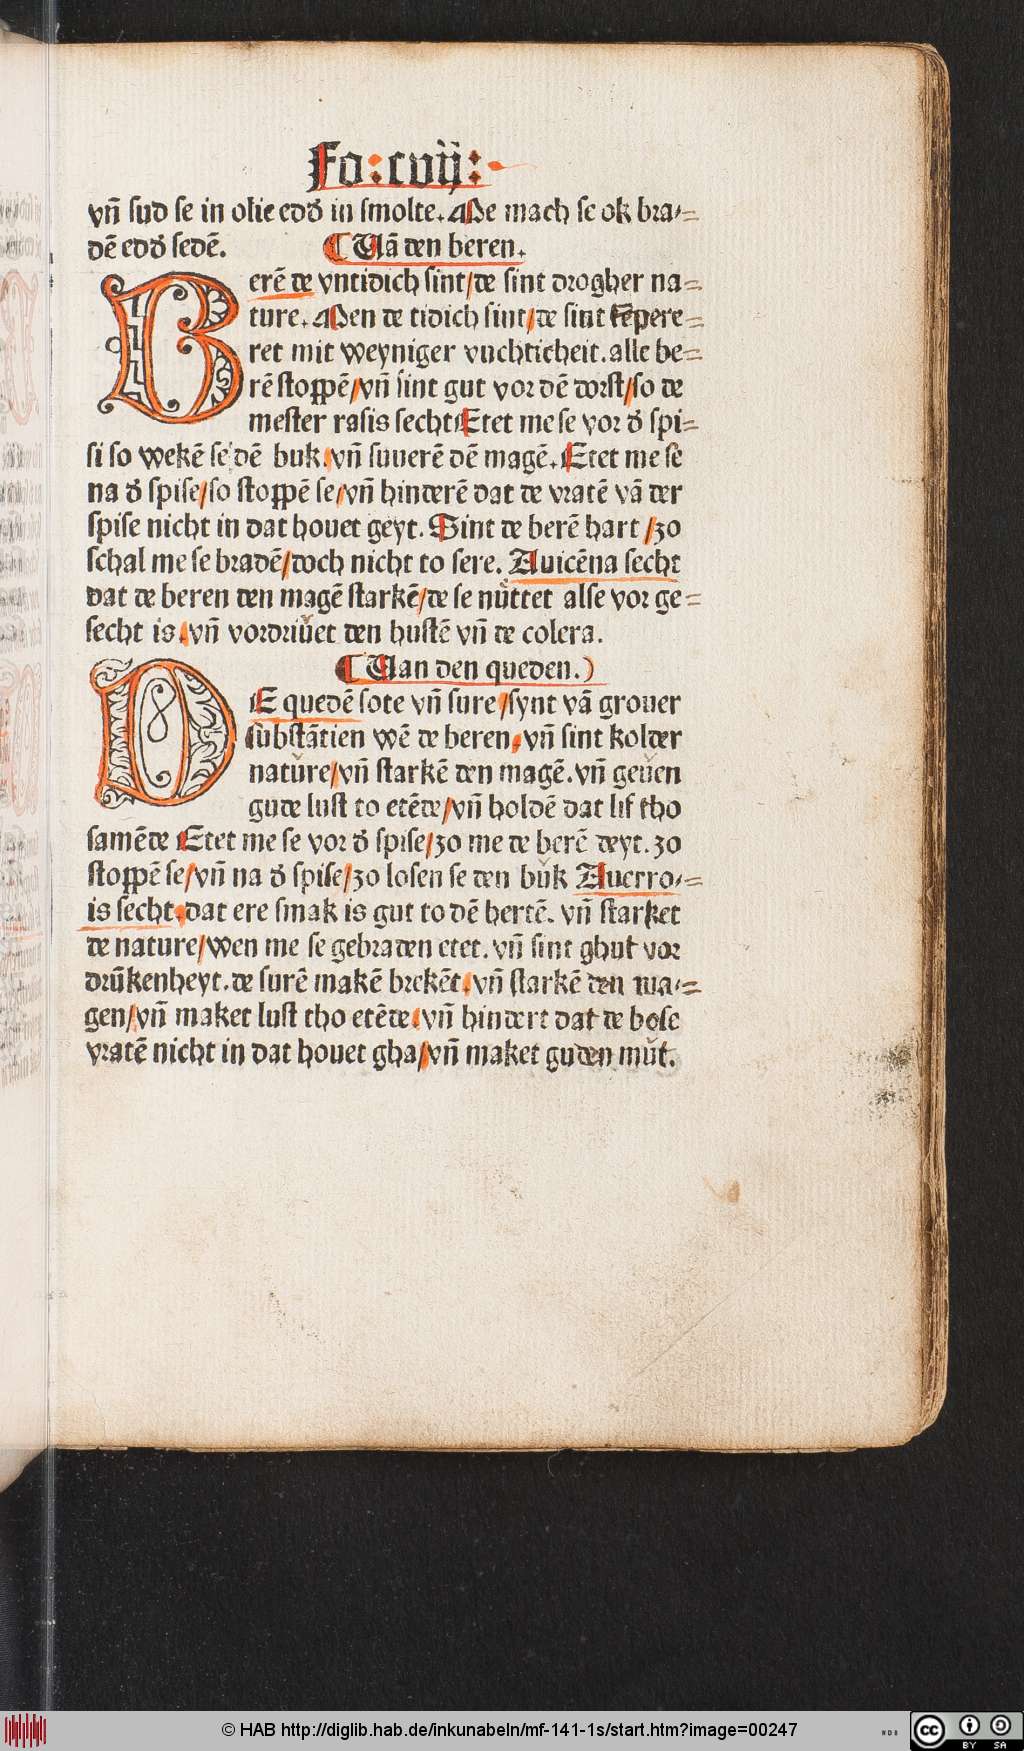 Fo:cvij:
vñ sud se in olie edď in smolte. Me mach se ok bra⸗
dē edď sedē. ¶ Vā den beren.
Berē de vntidich sint/de sint drogher na⸗
ture. Men de tidich sint/de sint tēpere⸗
ret mit weyniger vuchticheit. alle be⸗
rē stoppē/vñ sint gut vor dē dorst/so de
mester rasis secht Etet me se vor ď spi⸗
si so wekē se dē buk. vñ suuerē dē magē. Etet me se
na ď spise/so stoppē se/vñ hinderē dat de vratē vā der
spise nicht in dat houet geyt. Sint de berē hart/zo
schal me se bradē/doch nicht to sere. Auicēna secht
dat de beren den magē starkē/de se nuͤttet alse vor ge⸗
secht is. vñ vordriuͤet den hustē vñ de colera.
¶ Van den queden.)
DE quedē sote vñ sure/synt vā grouer
substātien wē de beren. vñ sint kolder
natuͤre/vñ starkē den magē. vñ geuͤen
gude lust to etēde/vñ holdē dat lif tho
samēde Etet me se vor ď spise/zo me de berē deyt. zo
stoppē se/vñ na ď spise/zo losen se den buͤk Auerro⸗
is secht. dat ere smak is gut to dē hertē. vñ starket
de nature/wen me se gebraden etet. vñ sint ghut vor
druͤkenheyt. de surē makē brekēt. vñ starkē den ma⸗
gen/vñ maket lust tho etēde. vñ hindert dat de bose
vratē nicht in dat houet gha/vñ maket guden muͤt.
© HAB http://diglib.hab.de/inkunabeln/mf-141-1s/start.htm?image=00247
WDB
cc BY SA